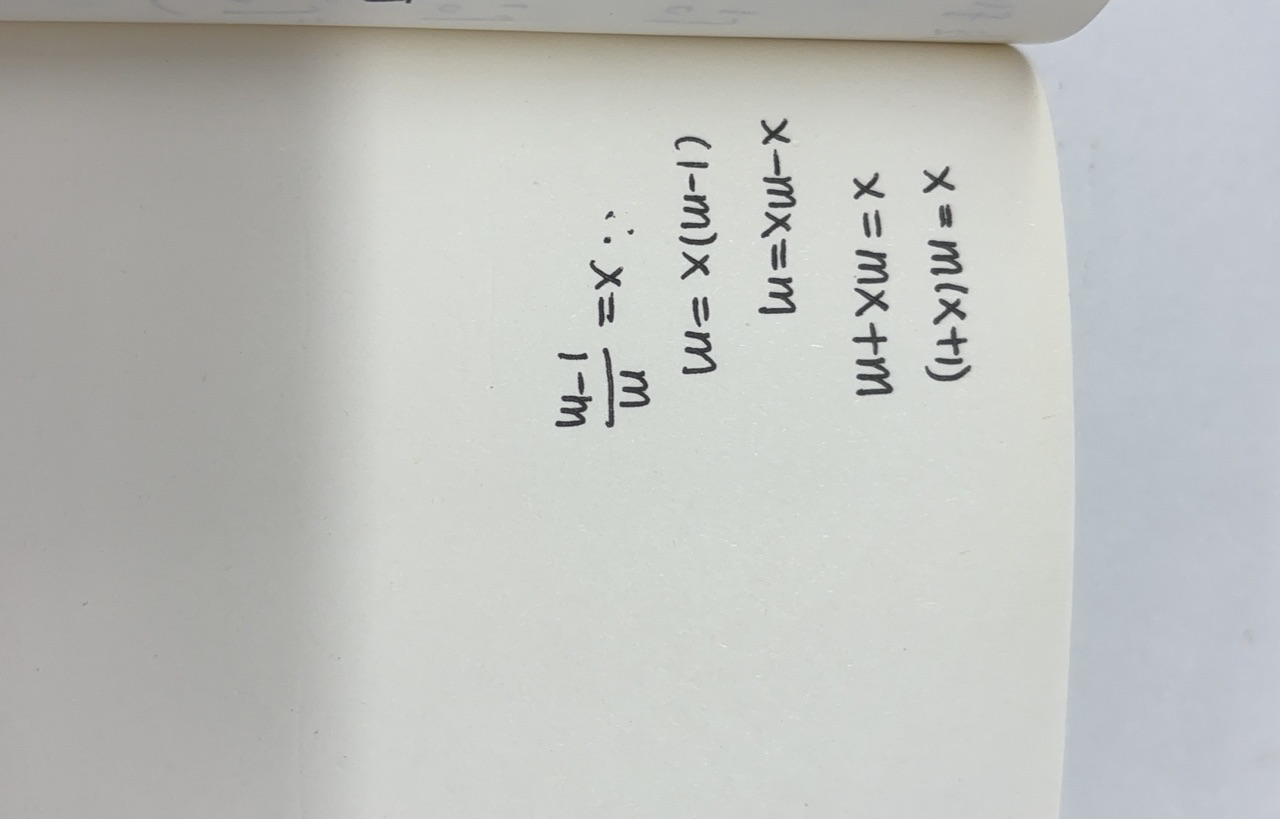 x = m(x+1)
x = mx+m
x-mx=m
(1-m)x=m
∴ x = m/(1-m)